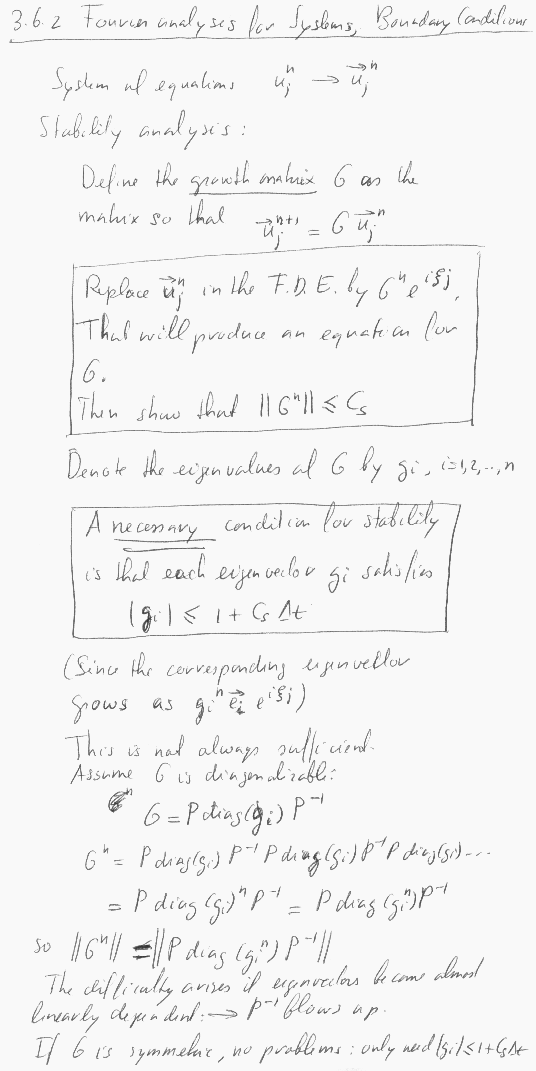 3.6.2 Fourier analyses for Systems, Boundary Conditions
System of equations u_j^n → \vec{u}_j^n
Stability analysis:
Define the growth matrix G as the
matrix so that \vec{u}_j^{n+1} = G \vec{u}_j^n
Replace \vec{u}_j^n in the F.D.E. by G^n e^{iξj}.
That will produce an equation for
G.
Then show that ||G^n|| ≤ C_s
Denote the eigenvalues of G by g_i, i=1,2,..,n
A necessary condition for stability
is that each eigenvector g_i satisfies
|g_i| ≤ 1 + C_s Δt
(Since the corresponding eigenvector
grows as g_i^n \vec{e}_i e^{iξj})
This is not always sufficient.
Assume G is diagonalizable:
G = P diag(g_i) P^{-1}
G^n = P diag(g_i) P^{-1} P diag(g_i) P^{-1} P diag(g_i)...
= P diag(g_i)^n P^{-1} = P diag(g_i^n) P^{-1}
so ||G^n|| = ||P diag(g_i^n) P^{-1}||
The difficulty arises if eigenvectors become almost
linearly dependent: → P^{-1} blows up.
If G is symmetric, no problems: only need |g_i| ≤ 1 + C_s Δt